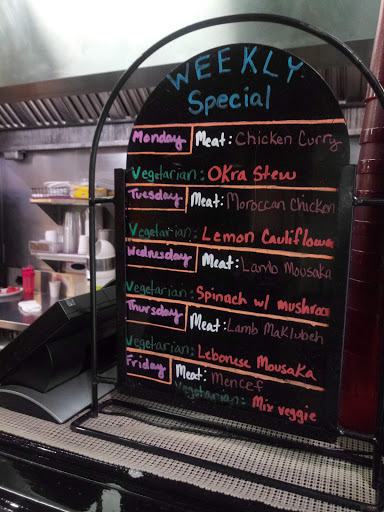 WEEKLY
Special
Monday Meat: Chicken Curry
Vegetarian: OKra Stew
Tuesday Meat: Moroccan Chicken
Vegetarian: Lemon Cauliflower
Wednesday Meat: Lamb Mousaka
Vegetarian: Spinach w/ mushroo
Thursday Meat: Lamb Maklubeh
Vegetarian: Lebonese Mousaka
Friday Meat: Mencef
Vegetarian: Mix veggie